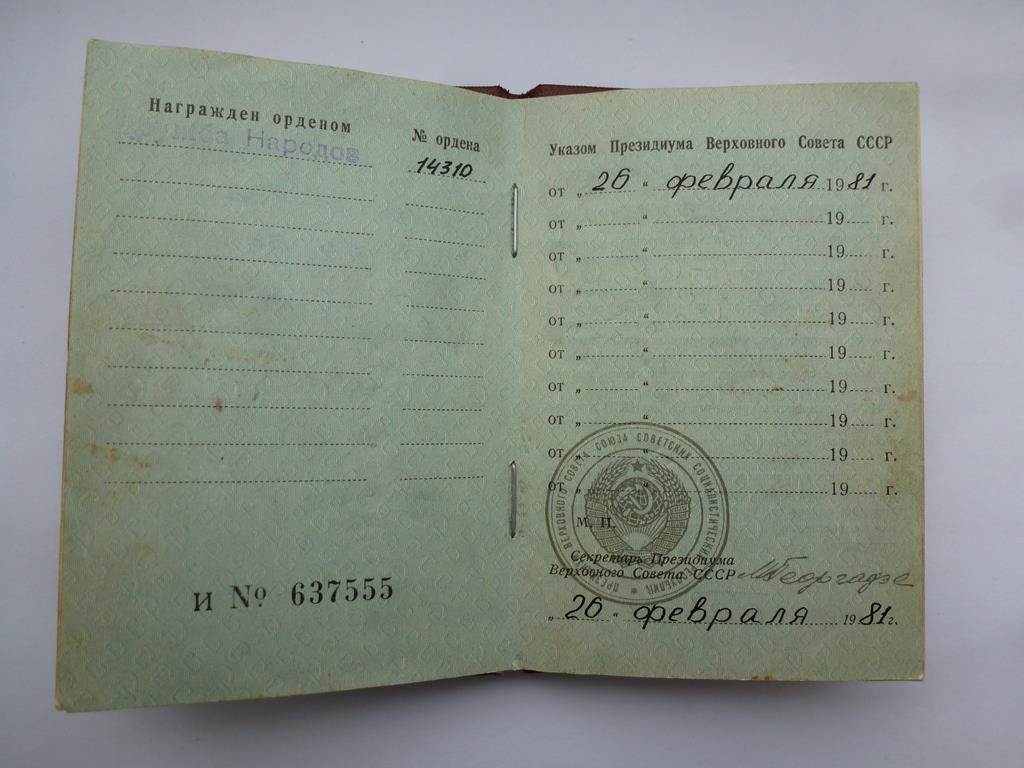 Награжден орденом
Дружба Народов
№ ордена
14310
И № 637555
Указом Президиума Верховного Совета СССР
от „ 26 “ февраля 1981 г.
от „ “ 19 г.
от „ “ 19 г.
от „ “ 19 г.
от „ “ 19 г.
от „ “ 19 г.
от „ “ 19 г.
от „ “ 19 г.
от „ “ 19 г.
от „ “ 19 г.
ВЕРХОВНОГО СОВЕТА СОЮЗА СОВЕТСКИХ СОЦИАЛИСТИЧЕСКИХ
М. П.
Секретарь Президиума
Верховного Совета СССР МГеоргадзе
„ 26 “ февраля 1981 г.